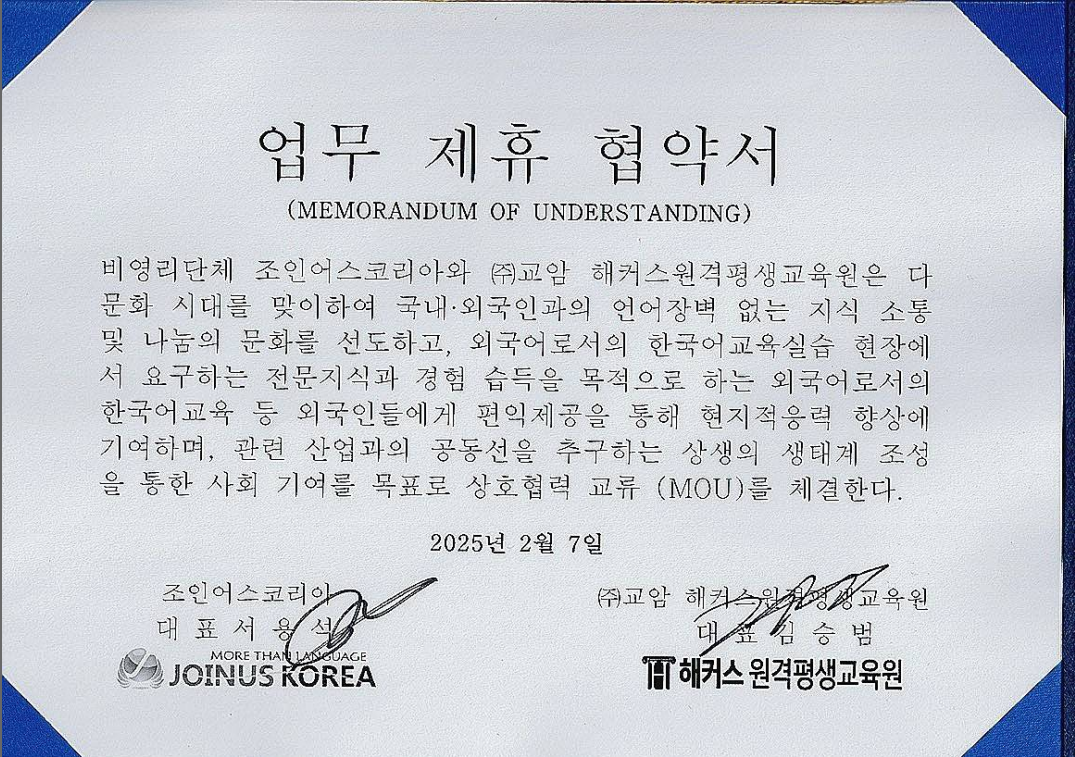 업무 제휴 협약서
(MEMORANDUM OF UNDERSTANDING)
비영리단체 조인어스코리아와 ㈜교암 해커스원격평생교육원은 다
문화 시대를 맞이하여 국내·외국인과의 언어장벽 없는 지식 소통
및 나눔의 문화를 선도하고, 외국어로서의 한국어교육실습 현장에
서 요구하는 전문지식과 경험 습득을 목적으로 하는 외국어로서의
한국어교육 등 외국인들에게 편익제공을 통해 현지적응력 향상에
기여하며, 관련 산업과의 공동선을 추구하는 상생의 생태계 조성
을 통한 사회 기여를 목표로 상호협력 교류 (MOU)를 체결한다.
2025년 2월 7일
조인어스코리아
대 표 서 용 석
MORE THAN LANGUAGE
JOINUS KOREA
㈜교암 해커스원격평생교육원
대 표 김 승 범
해커스 원격평생교육원